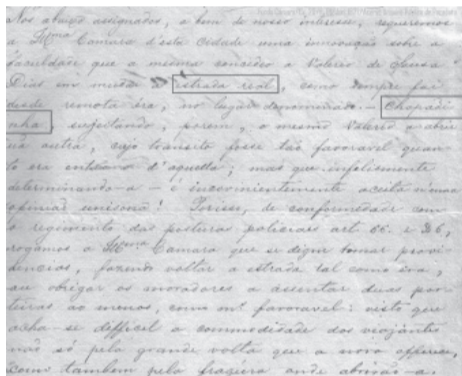 Nós abaixo assignados, a bem de nosso interesse, requeremos
a Illma Camara d'esta Cidade uma innovação sobre a
faculdade que a mesma concedeo a Valerio de Souza
Dias em mudar a estrada real, como sempre foi
desde remota éra, no lugar denominado – Chapadi
nha, sujeitando, porem, o mesmo Valerio a abrir
uã outra, cujo transito fosse tão favoravel quan
to era entõ o d'aquella; mas que infelismente
determinando-a – é inconvenientemente aceita n'uma
opinião unisona! Porisso, de conformidade com
o regimento das posturas policiaes art 66. e 86,
rogamos a Illma Camara que se digne tomar provi
dencias, fazendo voltar a estrada tal como éra;
ou obrigar os moradores a assentar duas por
teiras ao menos, como mº favoravel: visto que
acha se difficil a commodidade dos viajantes
não só pela grande volta que a nova offerece,
como tambem pela onde abrirão-a.